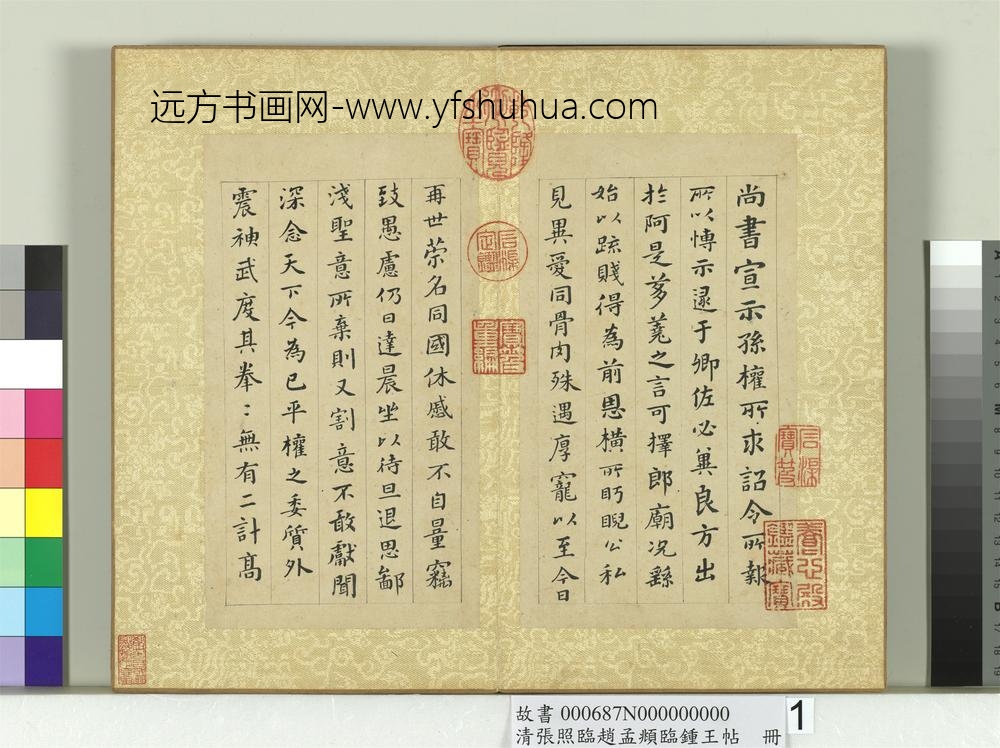 远方书画网-www.yfshuhua.com
尚書宣示孫權所求詔令所報
所以博示逮于卿佐必冀良方出
於阿是芻蕘之言可擇郎廟況繇
始以疏賤得為前恩橫所眄睨公私
見異愛同骨肉殊遇厚寵以至今日
再世荣名同國休慼敢不自量竊
致愚慮仍日達晨坐以待旦退思鄙
淺聖意所棄則又割意不敢獻聞
深念天下今為已平權之委質外
震神武度其拳〻無有二計高
乾隆御覽之寶
石渠定鑑
寶笈重編
石渠寶笈
養心殿鑑藏寶
故書 000687N000000000
清張照臨趙孟頫臨鍾王帖 冊
1